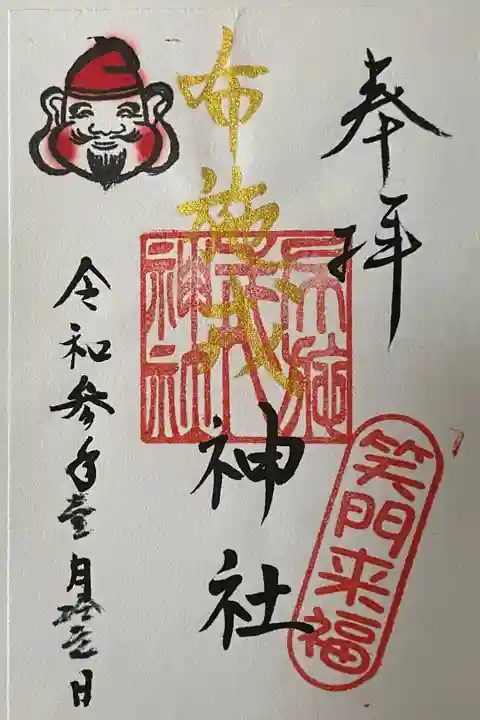 奉拝
布施戎神社
布施戎神社
笑門来福
令和参年壹月